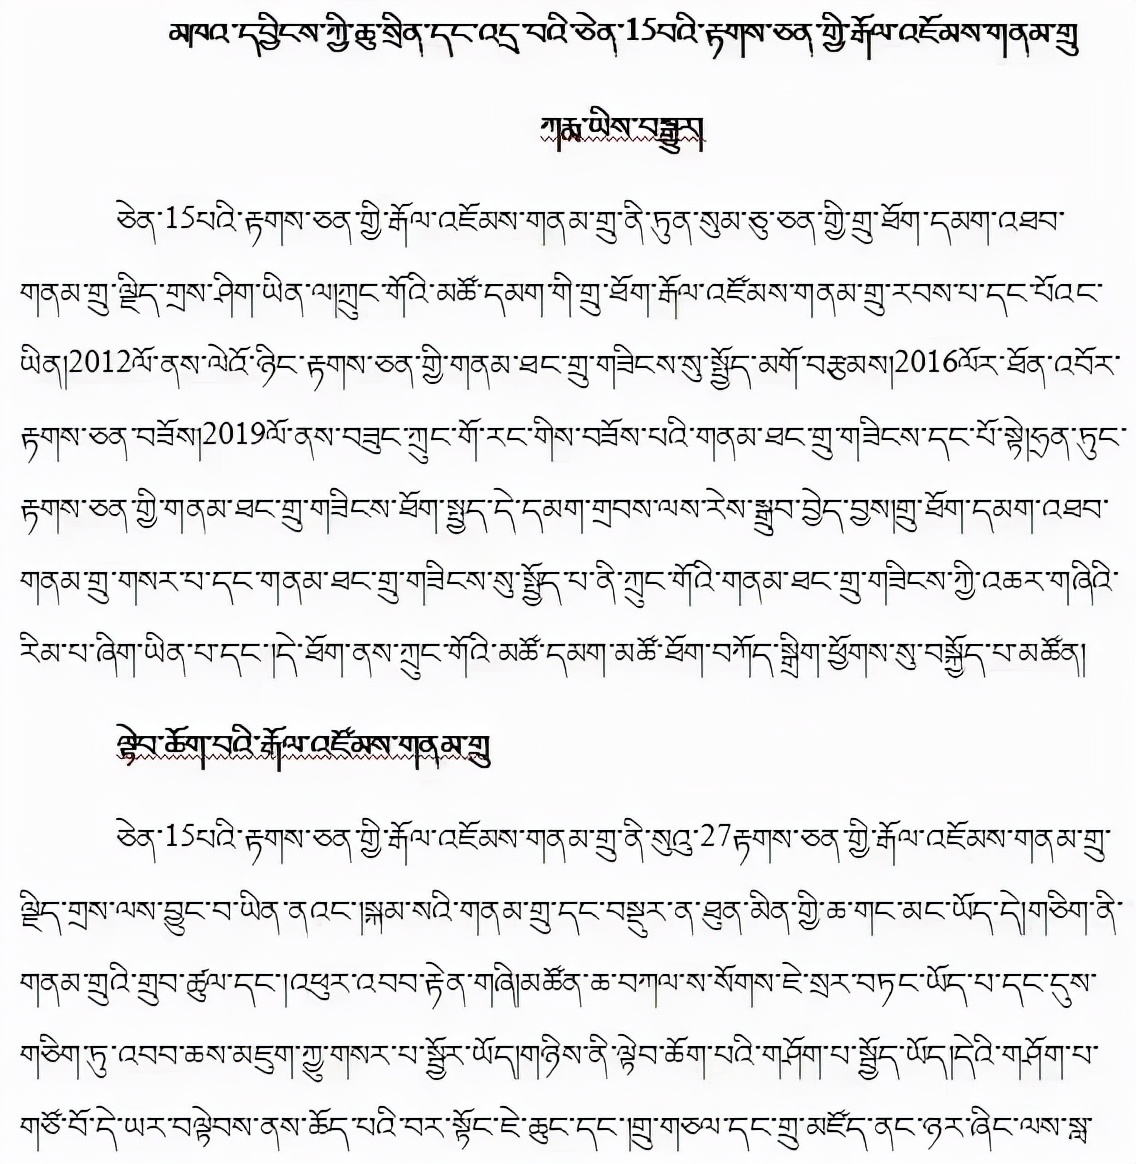 མཁའ་དབྱིངས་ཀྱི་ཆུ་སྲིན་དང་འདྲ་བའི་ཅེན་15པའི་རྟགས་ཅན་གྱི་རྒོལ་འཇོམས་གནམ་གྲུ
ཀརྨ་ཡིས་བསྒྱུར།
ཅེན་15པའི་རྟགས་ཅན་གྱི་རྒོལ་འཇོམས་གནམ་གྲུ་ནི་ཏུན་སུམ་ཅུ་ཅན་གྱི་གྲུ་ཐོག་དམག་འཐབ་
གནམ་གྲུ་ལྗིད་གྲས་ཤིག་ཡིན་ལ།ཀྲུང་གོའི་མཚོ་དམག་གི་གྲུ་ཐོག་རྒོལ་འཇོམས་གནམ་གྲུ་རབས་པ་དང་པོའང་
ཡིན།2012ལོ་ནས་ལེའོ་ཉིང་རྟགས་ཅན་གྱི་གནམ་ཐང་གྲུ་གཟིངས་སུ་སྤྱོད་མགོ་བརྩམས།2016ལོར་ཐོན་འབོར་
རྟགས་ཅན་བཟོས།2019ལོ་ནས་བཟུང་ཀྲུང་གོ་རང་གིས་བཟོས་པའི་གནམ་ཐང་གྲུ་གཟིངས་དང་པོ་སྟེ།ཧྲན་ཏུང་
རྟགས་ཅན་གྱི་གནམ་ཐང་གྲུ་གཟིངས་ཐོག་སྤྱད་དེ་དམག་གྲབས་ལས་རེས་སྒྲུབ་བྱེད་བྱས།གྲུ་ཐོག་དམག་འཐབ་
གནམ་གྲུ་གསར་པ་དང་གནམ་ཐང་གྲུ་གཟིངས་སུ་སྤྱོད་པ་ནི་ཀྲུང་གོའི་གནམ་ཐང་གྲུ་གཟིངས་ཀྱི་འཆར་གཞིའི་
རིམ་པ་ཞིག་ཡིན་པ་དང་།དེ་ཐོག་ནས་ཀྲུང་གོའི་མཚོ་དམག་མཚོ་ཐོག་བཀོད་སྒྲིག་ཕྱོགས་སུ་བསྐྱོད་པ་མཚོན།
ལྟེབ་ཆོག་བའི་རྒོལ་འཇོམས་གནམ་གྲུ
ཅེན་15པའི་རྟགས་ཅན་གྱི་རྒོལ་འཇོམས་གནམ་གྲུ་ནི་སུའུ་27རྟགས་ཅན་གྱི་རྒོལ་འཇོམས་གནམ་གྲུ་
ལྗིད་གྲས་ལས་བྱུང་བ་ཡིན་ནའང་།སྐམ་སའི་གནམ་གྲུ་དང་བསྡུར་ན་ཐུན་མིན་གྱི་ཆ་གང་མང་ཡོད་དེ།གཅིག་ནི་
གནམ་གྲུའི་གྲུབ་ཚུལ་དང་།འཕུར་འབབ་རྟེན་གཞི།མཚོན་ཆ་བཀལ་ས་སོགས་ཇེ་སྲར་བཏང་ཡོད་པ་དང་དུས་
གཅིག་ཏུ་འབབ་ཆས་མཇུག་ཀྱུ་གསར་པ་སྦྱོར་ཡོད།གཉིས་ནི་ལྟེབ་ཆོག་པའི་གཤོག་པ་སྤྱོད་ཡོད།དེའི་གཤོག་པ་
གཙོ་བོ་དེ་ཡར་བལྟེབས་ནས་ཆོད་པའི་བར་སྟོང་ཇེ་ཆུང་དང་།གྲུ་གཅལ་དང་གྲུ་མཛོད་ནང་ཉར་ཞིང་ལས་སླ་